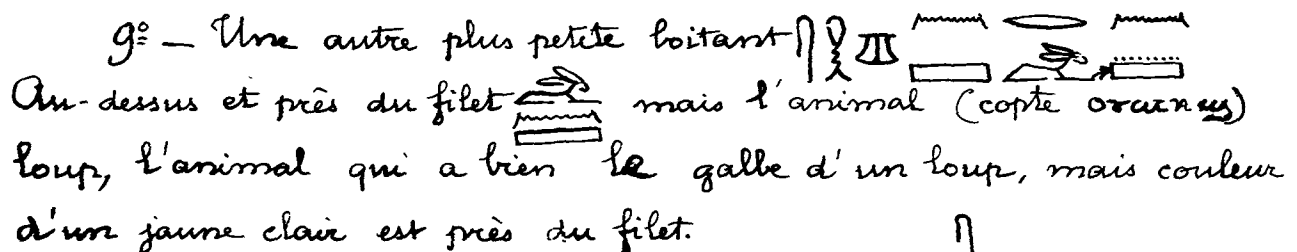 9º — Une autre plus petite boitant
Au-dessus et près du filet mais l'animal (copte ⲟⲩⲱⲛϣ)
loup, l'animal qui a bien le galbe d'un loup, mais couleur
d'un jaune clair est près du filet.